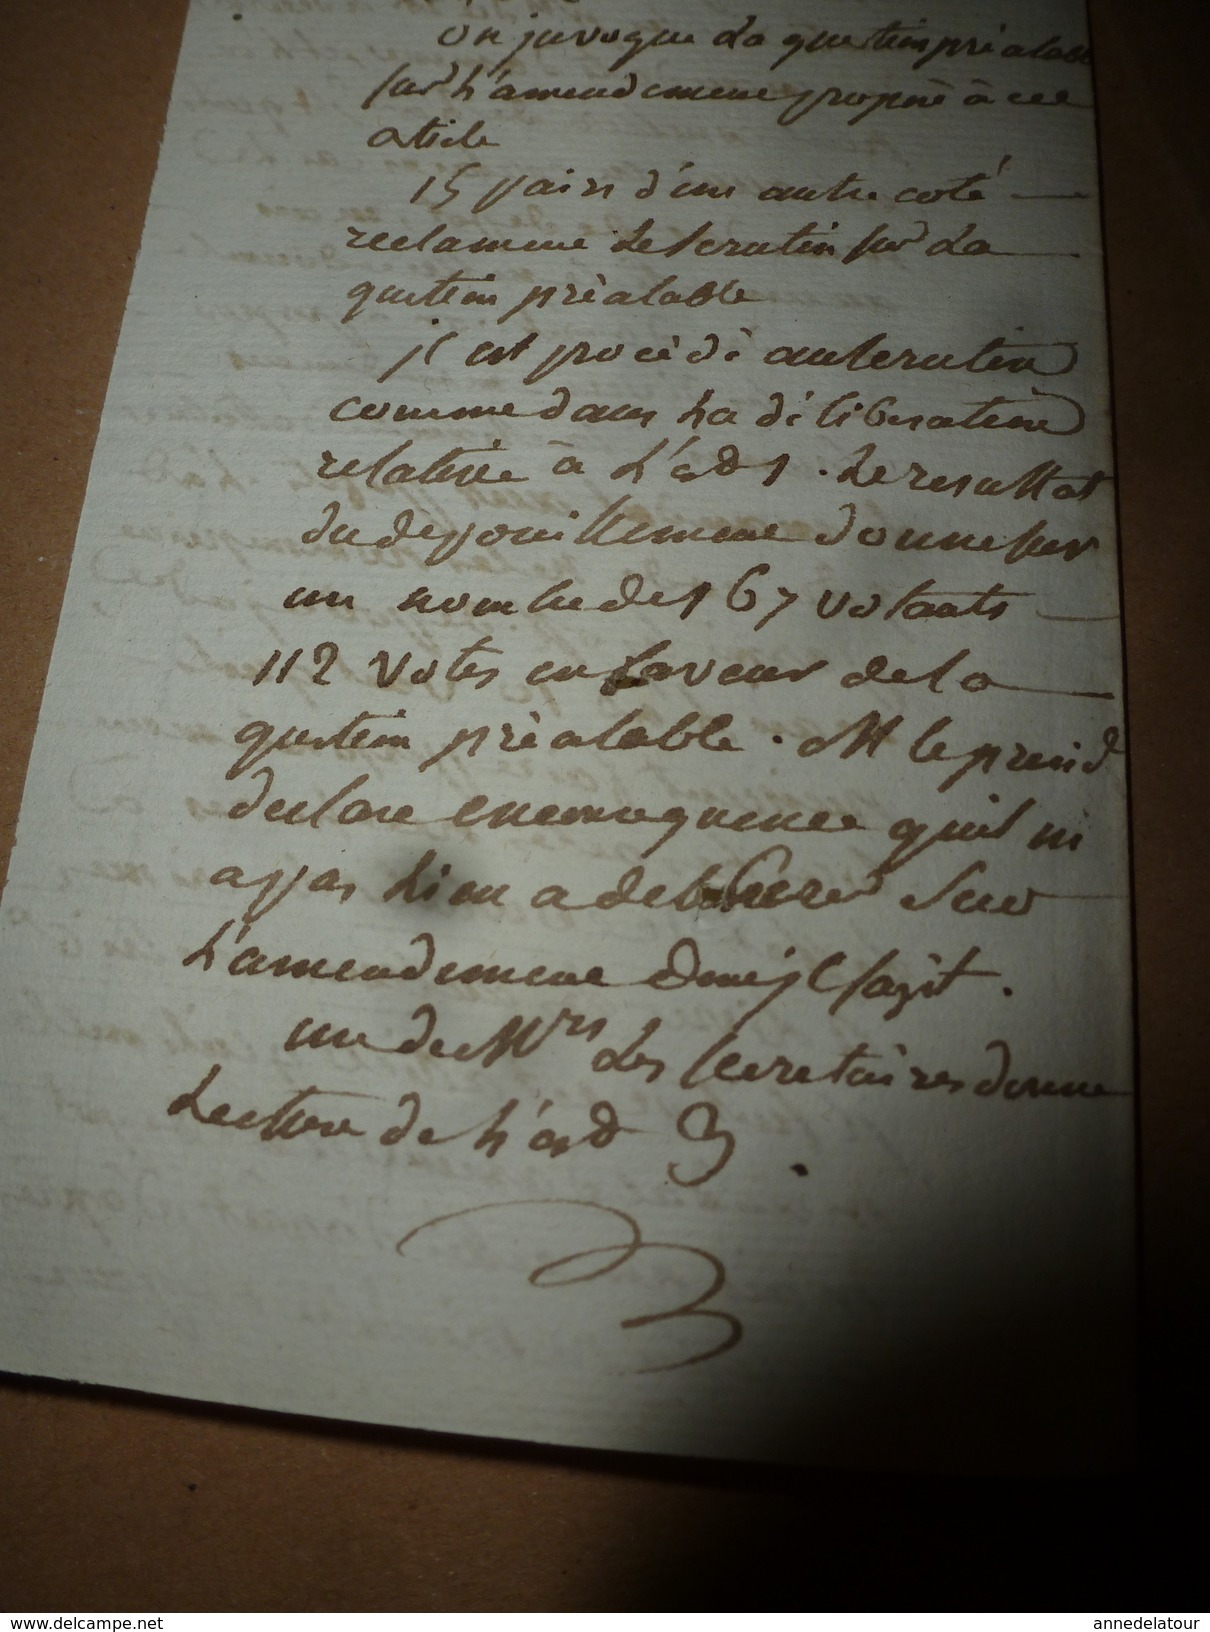 on invoque la question préalable
sur l'amendement proposé à cet
article
15 pairs d'un autre coté
reclament le scrutin sur la
question préalable
il est procédé au scrutin
comme dans la déliberation
relative à l'art 1. le resultat
du depouillement donne sur
un nombre de 167 votants
112 votes en faveur de la
question préalable. M le presid
declare en consequence quil ni
a pas lieu a deliberer sur
l'amendement dont il sagit.
un de Mrs les secretaires donne
lecture de l'art 3.
delcampe.net
annedelatour